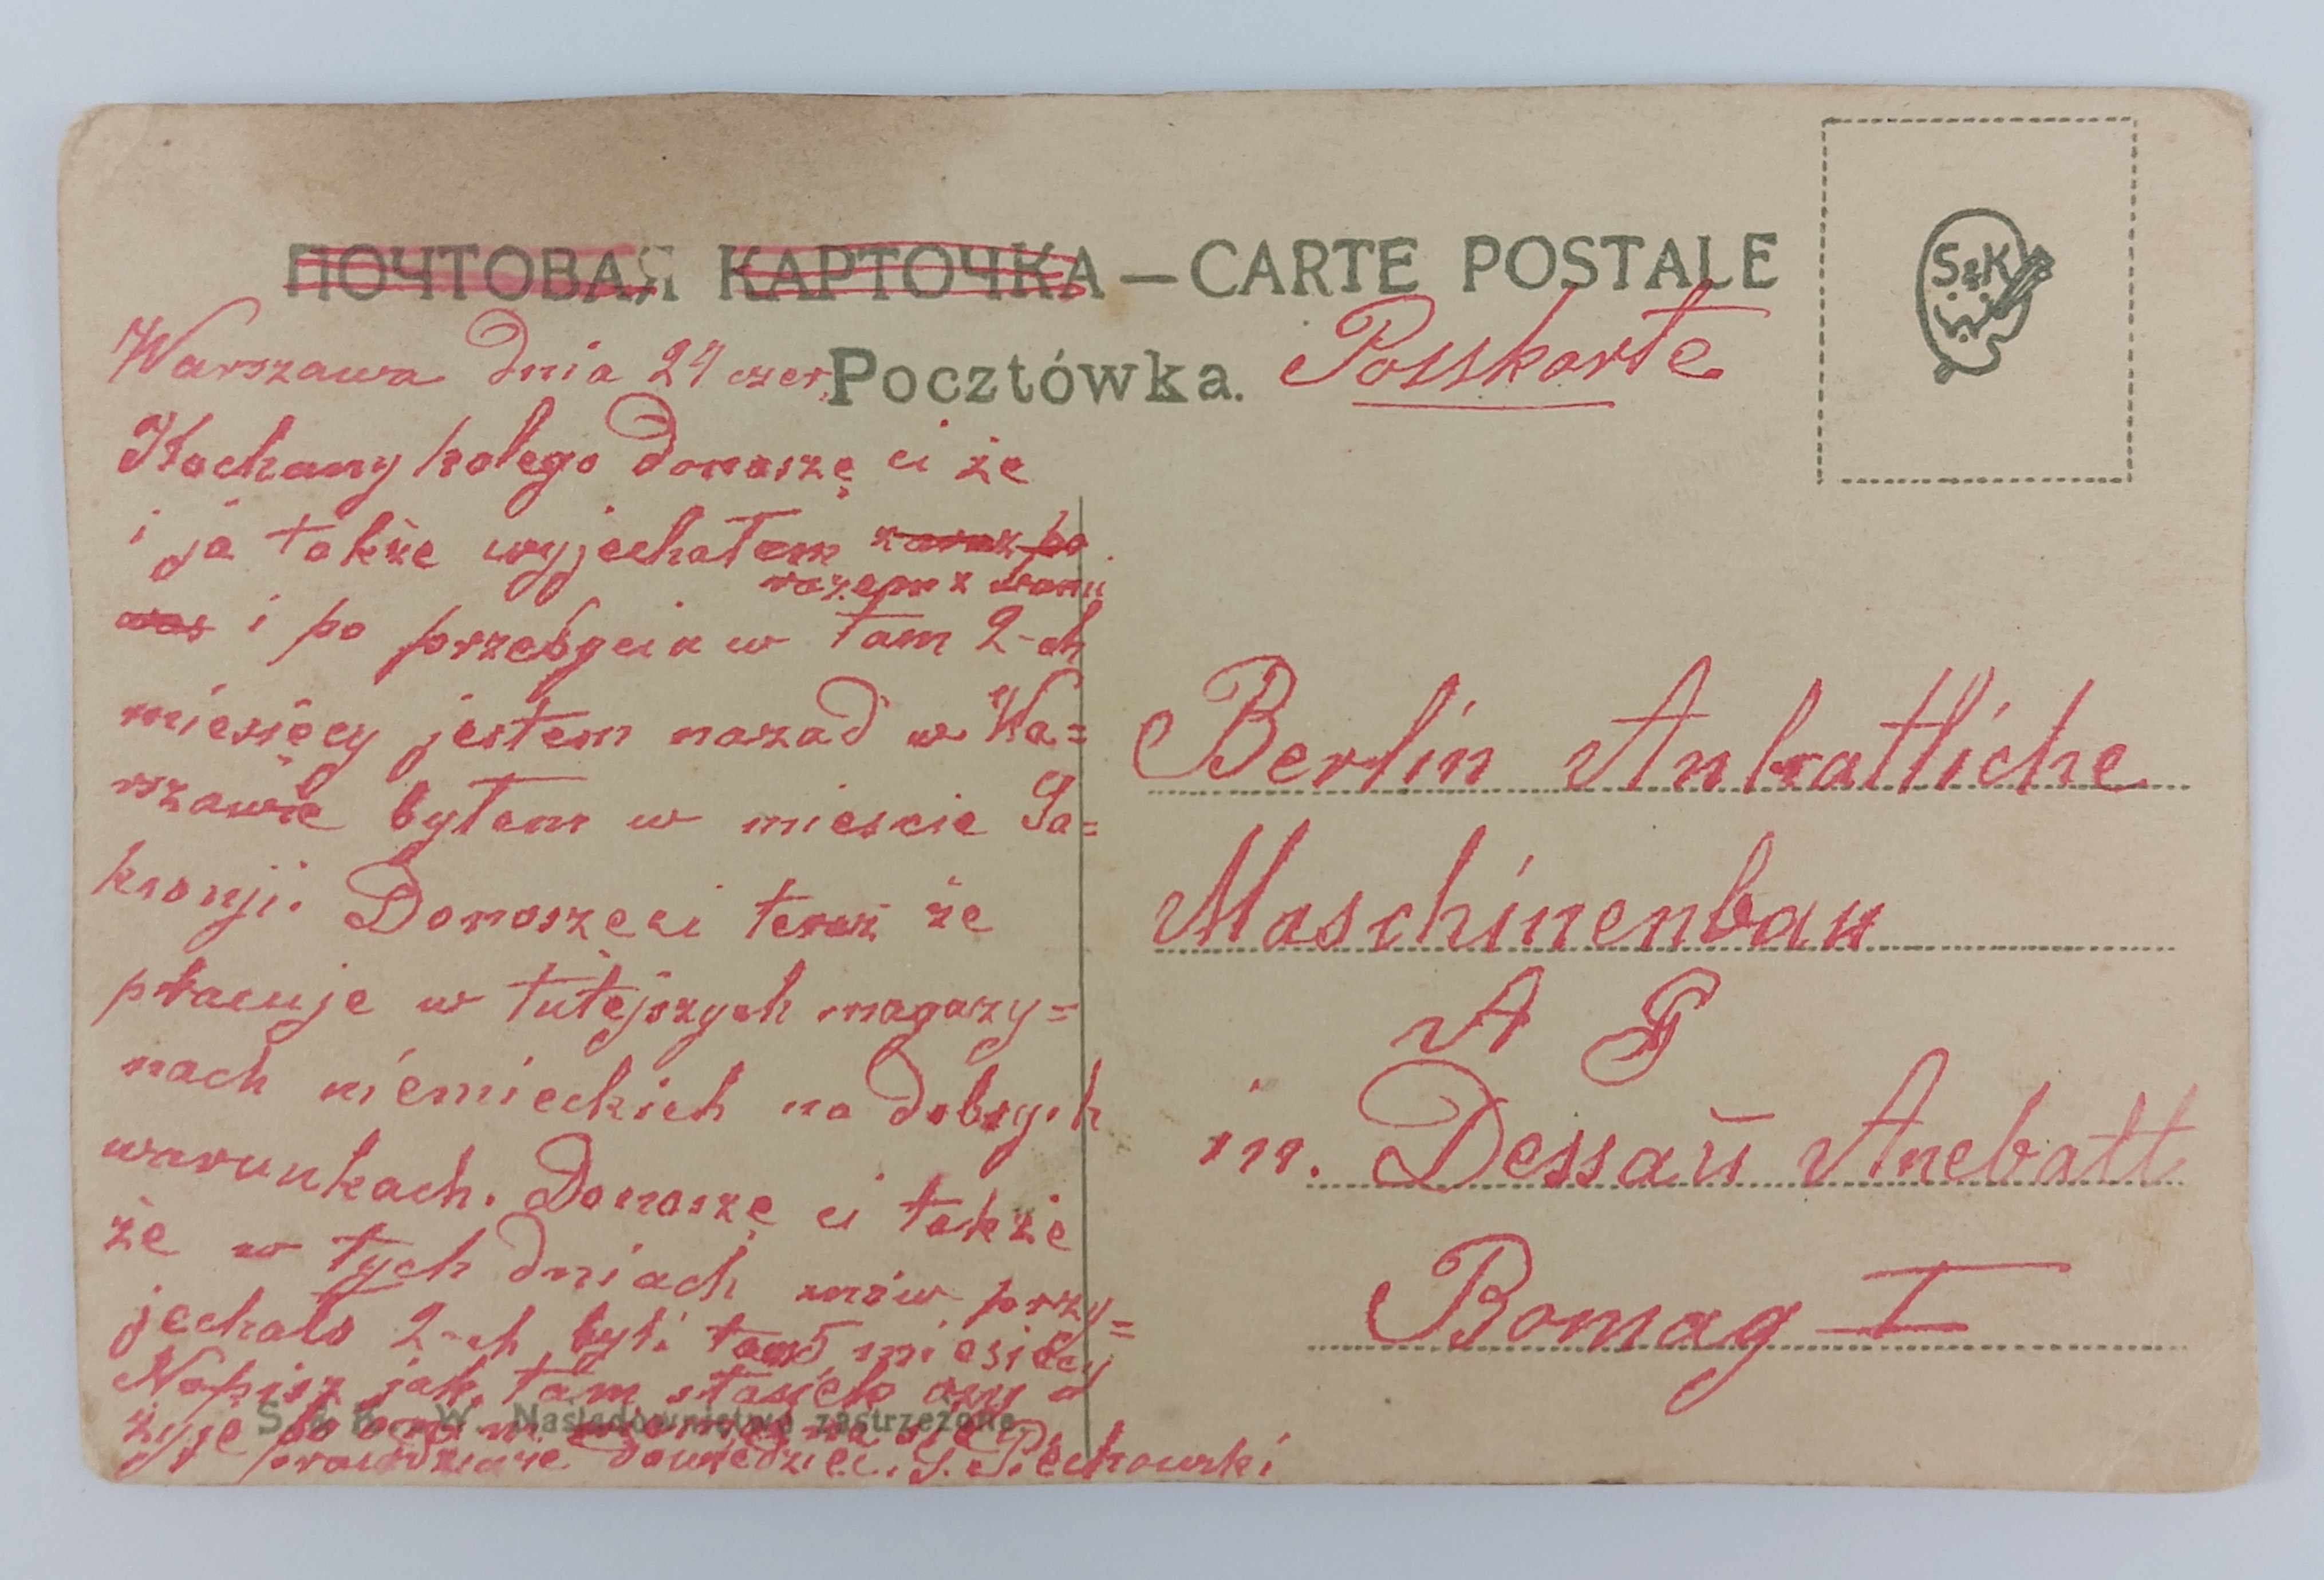 ПОЧТОВАЯ КАРТОЧКА — CARTE POSTALE
S&K
Pocztówka. Posskarte
Warszawa dnia 29 czer.
Kochany kolego donoszę ci że
i ja także wyjechałem zaraz po
razem z wami
was i po przebyciu w tam 2-ch
miesięcy jestem nazad w Wa=
rszawie byłem w mieście Sa=
ksonji. Donoszę ci teraz że
pracuje w tutejszych magazy=
nach niemieckich na dobrych
warunkach. Donoszę ci także
że w tych dniach znów przy=
jechało 2-ch byli tam 5 miesięcy
Napisz jak tam stasiek czy
żyje bo
prawdziwie dowiedzieć. S. Piechowski
S. & K. W. Naśladownictwo zastrzeżone.
Berlin Anhatliche
Maschinenbau
A G
in. Dessaū Anebatt
Bomag I